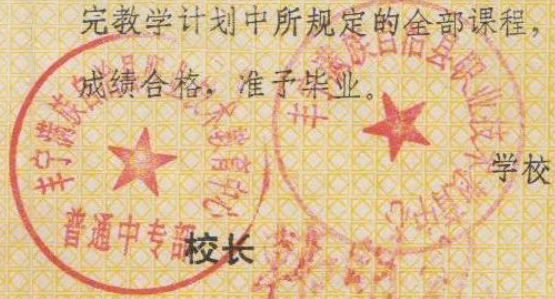 完教学计划中所规定的全部课程，
成绩合格，准予毕业。
丰宁满族自治县职业技术教育中心
普通中专部
丰宁满族自治县职业技术教育中心
学校
校长